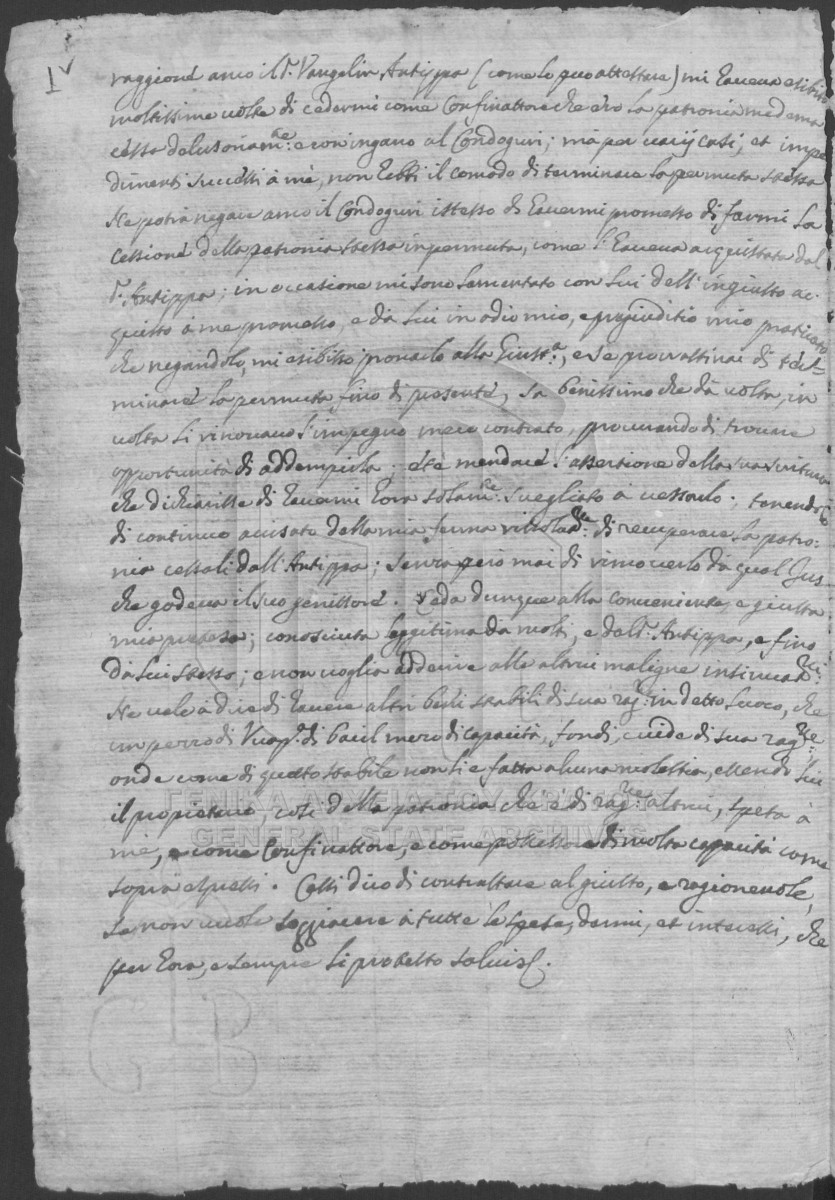 1v
raggioné anco il Sr. Vangelin Antippa (come lo può attestare) mi haveva esibito
moltissime volte di cedermi come Confinattore che ero la patronia medema
cessa delusoriamte: e con ingano al Condoguri; mà per varij casi, et impe
dimenti successi à mé, non hebbi il comodo di terminare la permuta stessa
Ne potrà negare anco il Condoguri istesso di havermi promesso di farmi la
cessioné della patronia stessa in permuta, come l'haveva acquistata dal
Sr. Antippa; in occasione mi sono lamentato con lui dell'ingiusto ac:
quisto à me promesso, e dà lui in odio mio, e pregiuditio mio praticato
che negandolo, mi esibisco provarlo alla Giusta:, e se procrastinai di tér=
minaré la permuta fino di presenté, sà benissimo che dà volta, in
volta si rinovava l'impegno meco contrato, procurando di trovare
opportunità di addempirla; et é mendacé l'assertione della sua scrittura
che dichiarisse di havermi hora solamte. svegliato à vessarlo; tenendolo
di continuo avisato della mia ferma rissolutne: di recuperare la patro:
nia cessali dall'Antippa; senza però mai di rimoverlo dà qual Jus
che godeva il suo genittoré. Ceda dunque alla conveniente, e giusta
mia pretesa; conosciuta leggitima da molti, e dal Sr. Antippa, e fino
dà lui stesso; e non voglia adderire alle altrui maligne insinuatni:
Ne vale à dire di havere altri beni stabili di sua ragne: in detto luoco, che
un pezzo di di bacil mezo di capacità, fondi, cuide di sua ragne:
onde come di questo stabile non li e fatta alcuna molestia, essendo lui
il propietario, cosi della patronia che é di ragne: altrui, speta à
mé, e come Confinattore, e come possessore di molta capacità come
sopra espressi. Cessi dico di contrastare al giusto, e ragionevole,
se non vuole soggiacere à tutte le spese, danni, et interessi, che
per hora, e sempre li protesto salvis.
ΓΕΝΙΚΑ ΑΡΧΕΙΑ ΤΟΥ ΚΡΑΤΟΥΣ
GENERAL STATE ARCHIVES